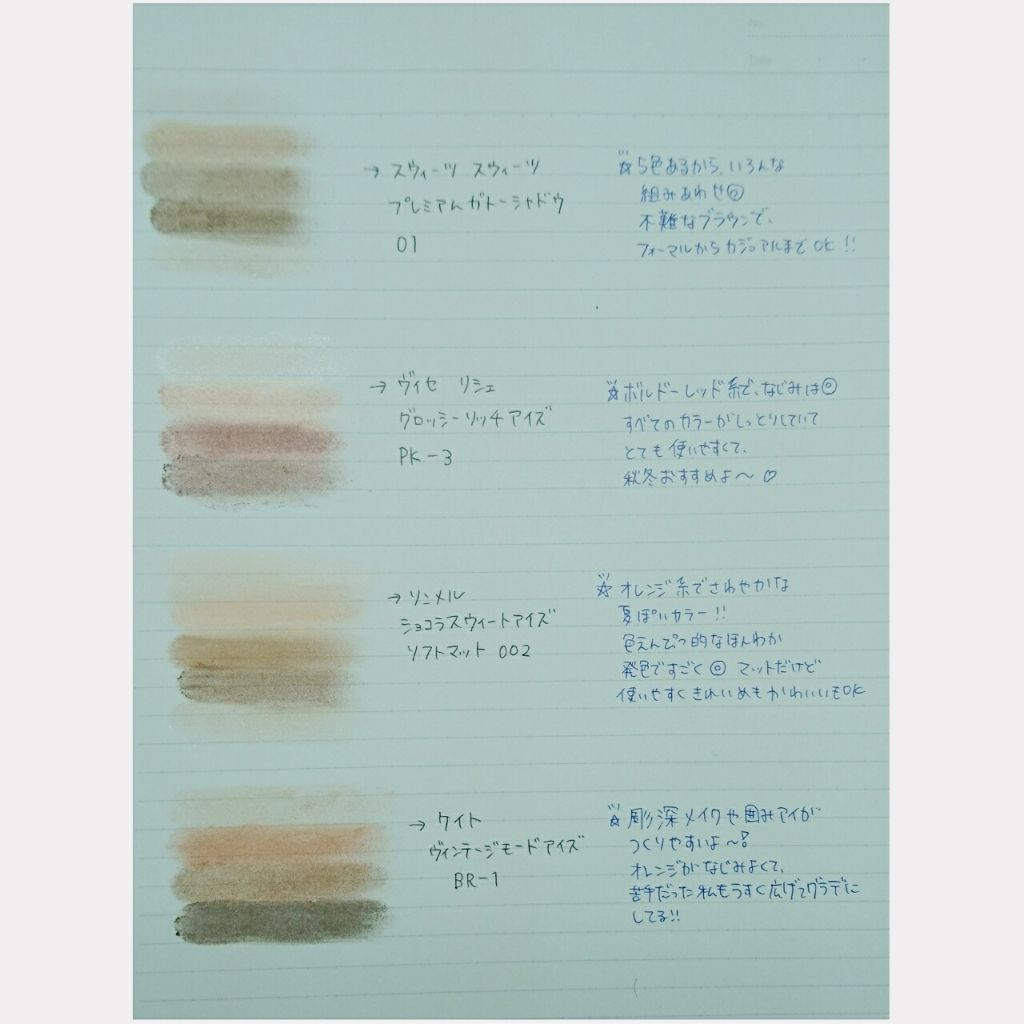 No.
Date
→ スウィーツ スウィーツ
プレミアムガトーシャドウ
01
☆5色あるから、いろんな
組みあわせ◎
不難なブラウンで、
フォーマルからカジュアルまでOK!!
→ ヴィセ リシェ
グロッシーリッチアイズ
PK-3
☆ボルドーレッド系で、なじみは◎
すべてのカラーがしっとりしていて
とても使いやすくて、
秋冬おすすめよ〜♡
→ リンメル
ショコラスウィートアイズ
ソフトマット 002
☆オレンジ系でさわやかな
夏ぽいカラー!!
色えんぴつ的なほんわか
発色ですごく◎ マットだけど
使いやすくきれいめもかわいいもOK
→ ケイト
ヴィンテージモードアイズ
BR-1
☆彫深メイクや囲みアイが
つくりやすいよ〜!
オレンジがなじみよくて、
苦手だった私もうすく広げてグラデに
してる!!